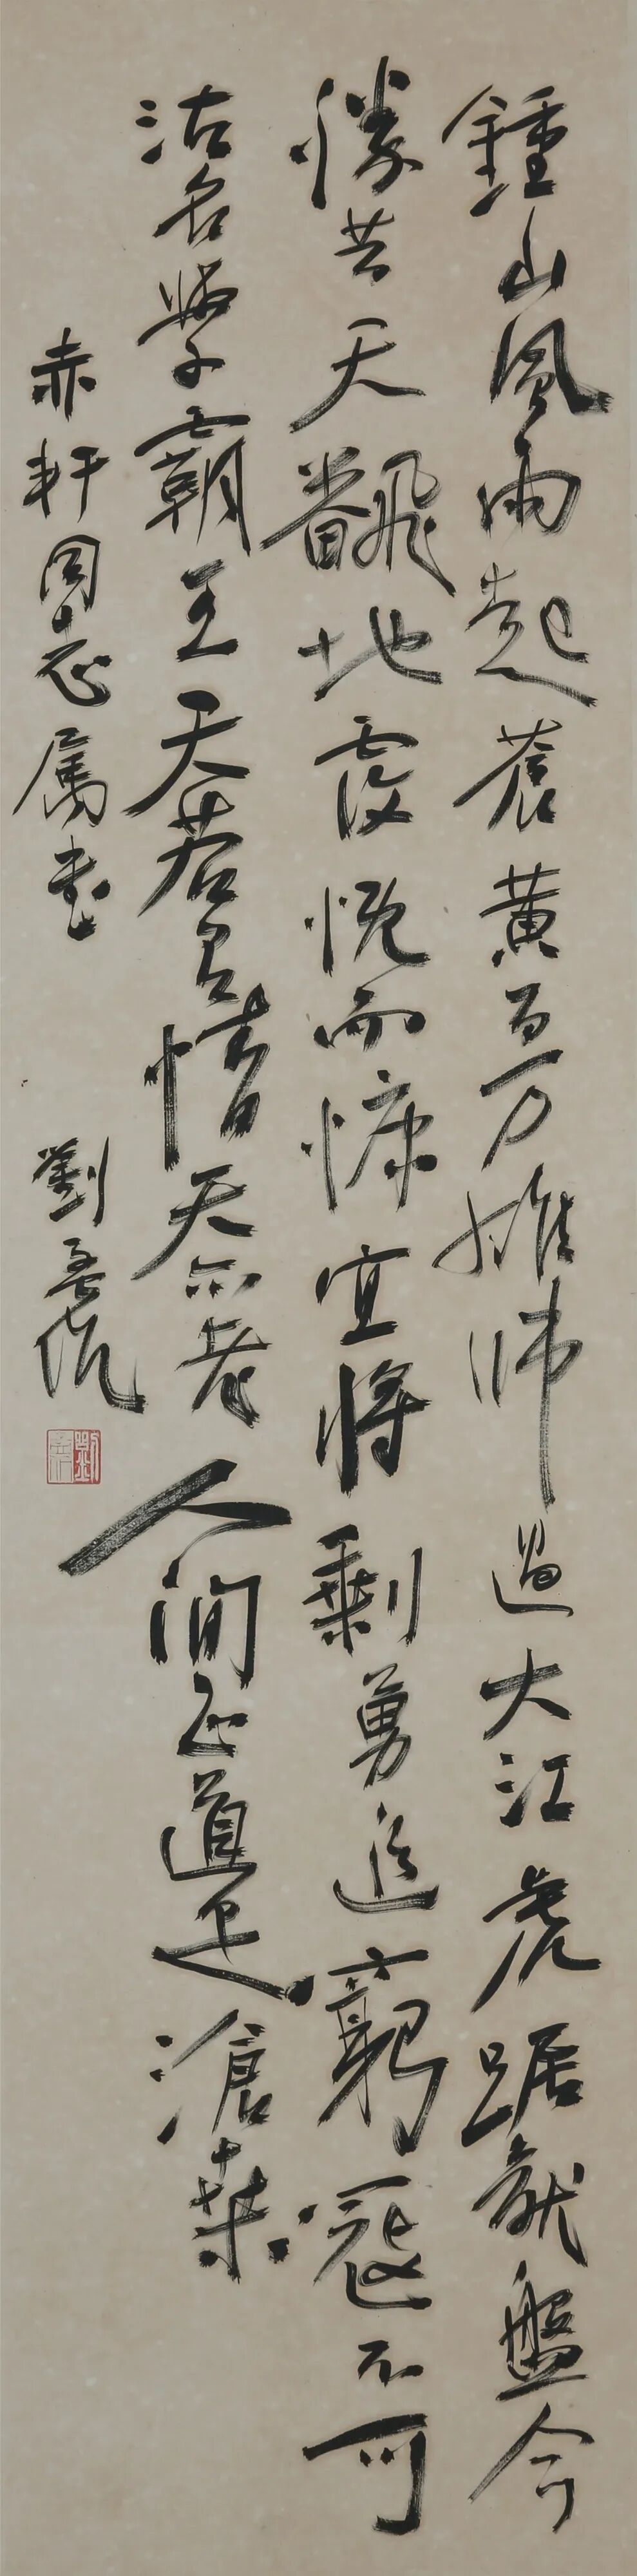 鍾山風雨起蒼黃百萬雄師過大江虎踞龍盤今
勝昔天飜地覆慨而慷宜將剩勇追窮寇不可
沽名學霸王天若有情天亦老人間正道是滄桑
赤軒同志属書
劉